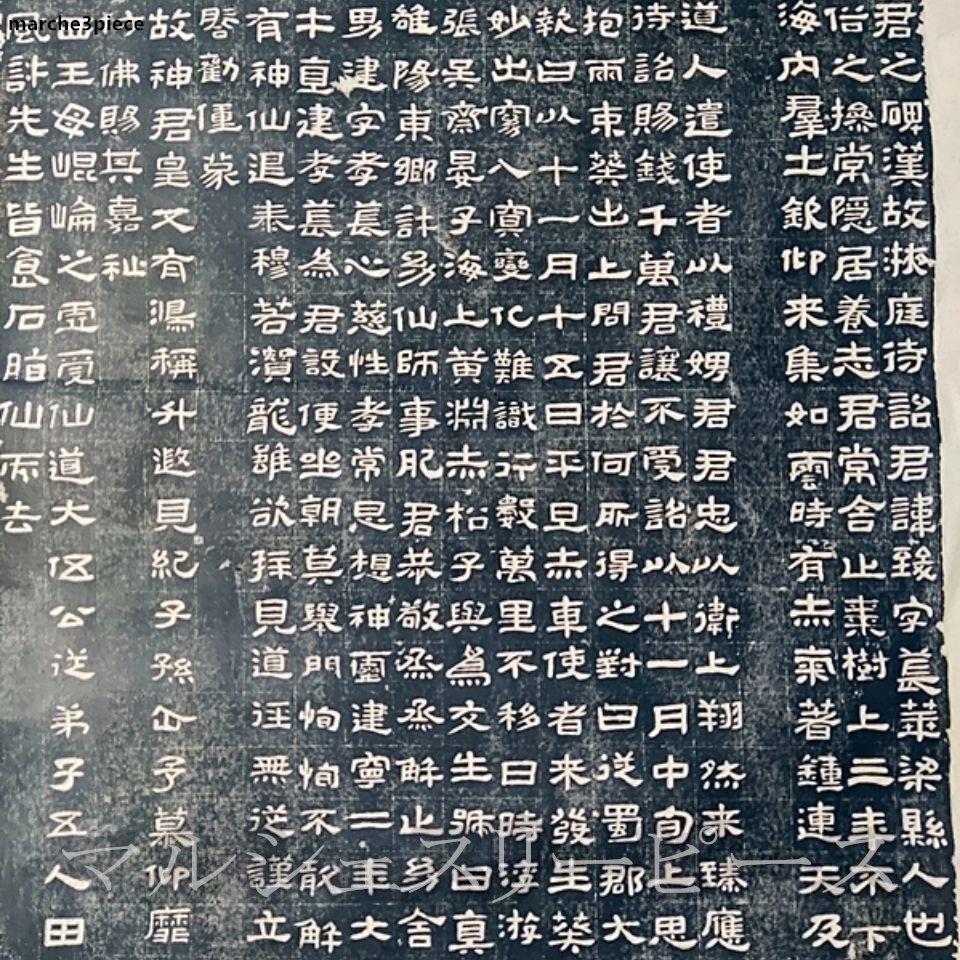 君之碑漢故掖庭待詔君諱致字萇華梁縣人也
俗之操常隱居養志君常舍止棗樹上三年不下
海内羣士欽仰来集如雲時有赤氣著鍾連天及
道人遣使者以禮娉君君忠以衛上翔然来臻應
待詔賜錢千萬君讓不受詔以十一月中旬上思
抱兩束葵出上問君於何所得之對曰従蜀郡大
欶曰以十一月十五日平旦赤車使者来發生葵
妙出窈入冥變化難識行數萬里不移日時浮游
張吳齋晏子海上黄淵赤松子與為友生號曰真
雒陽東鄉許幼仙師事肥君恭敬烝烝解止幼舍
男建字孝萇心慈性孝常思想神靈建寧二年大
牛直建孝萇為君設便坐朝莫舉門恂恂不敢解
有神仙退泰穆若瀵龍雖欲拜見道徑無従謹立
啓勸僮蒙
故神君皇又有鴻稱升遐見紀子孫企予慕仰靡
佛賜其嘉祉
西王母崐崘之虚受仙道大伍公従弟子五人田
許先生皆食石脂仙而去
marche3piece
マルシェスリーピース